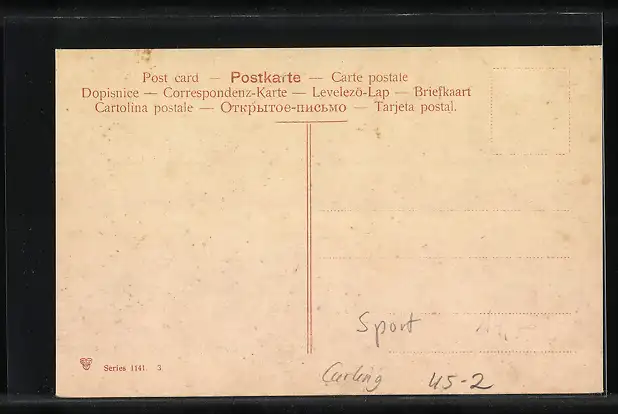 Post card — Postkarte — Carte postale
Dopisnice — Correspondenz-Karte — Levelezö-Lap — Briefkaart
Cartolina postale — Открытое-письмо — Tarjeta postal.
Sport
Series 1141 3
Curling 45-2